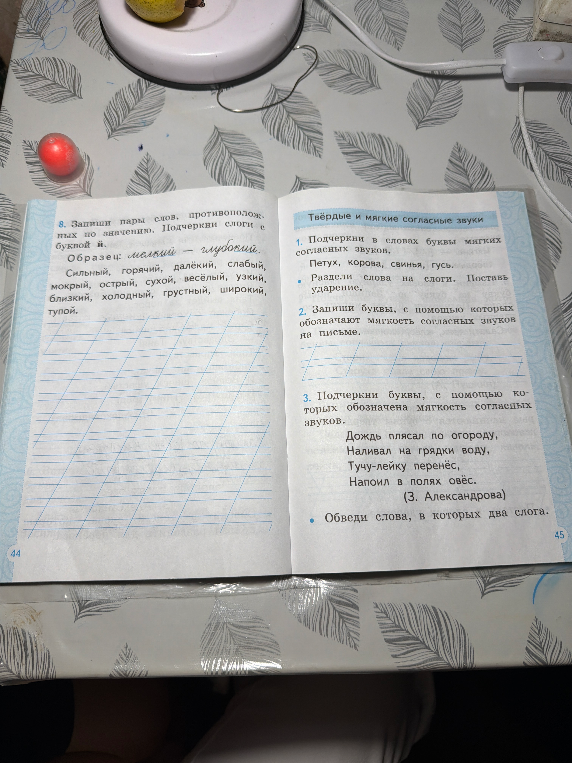 8. Запиши пары слов, противополож-
ных по значению. Подчеркни слоги с
буквой й.
Образец: мелкий — глубокий.
Сильный, горячий, далёкий, слабый,
мокрый, острый, сухой, весёлый, узкий,
близкий, холодный, грустный, широкий,
тупой.
44
Твёрдые и мягкие согласные звуки
1. Подчеркни в словах буквы мягких
согласных звуков.
Петух, корова, свинья, гусь.
• Раздели слова на слоги. Поставь
ударение.
2. Запиши буквы, с помощью которых
обозначают мягкость согласных звуков
на письме.
3. Подчеркни буквы, с помощью ко-
торых обозначена мягкость согласных
звуков.
Дождь плясал по огороду,
Наливал на грядки воду,
Тучу-лейку перенёс,
Напоил в полях овёс.
(З. Александрова)
• Обведи слова, в которых два слога.
45